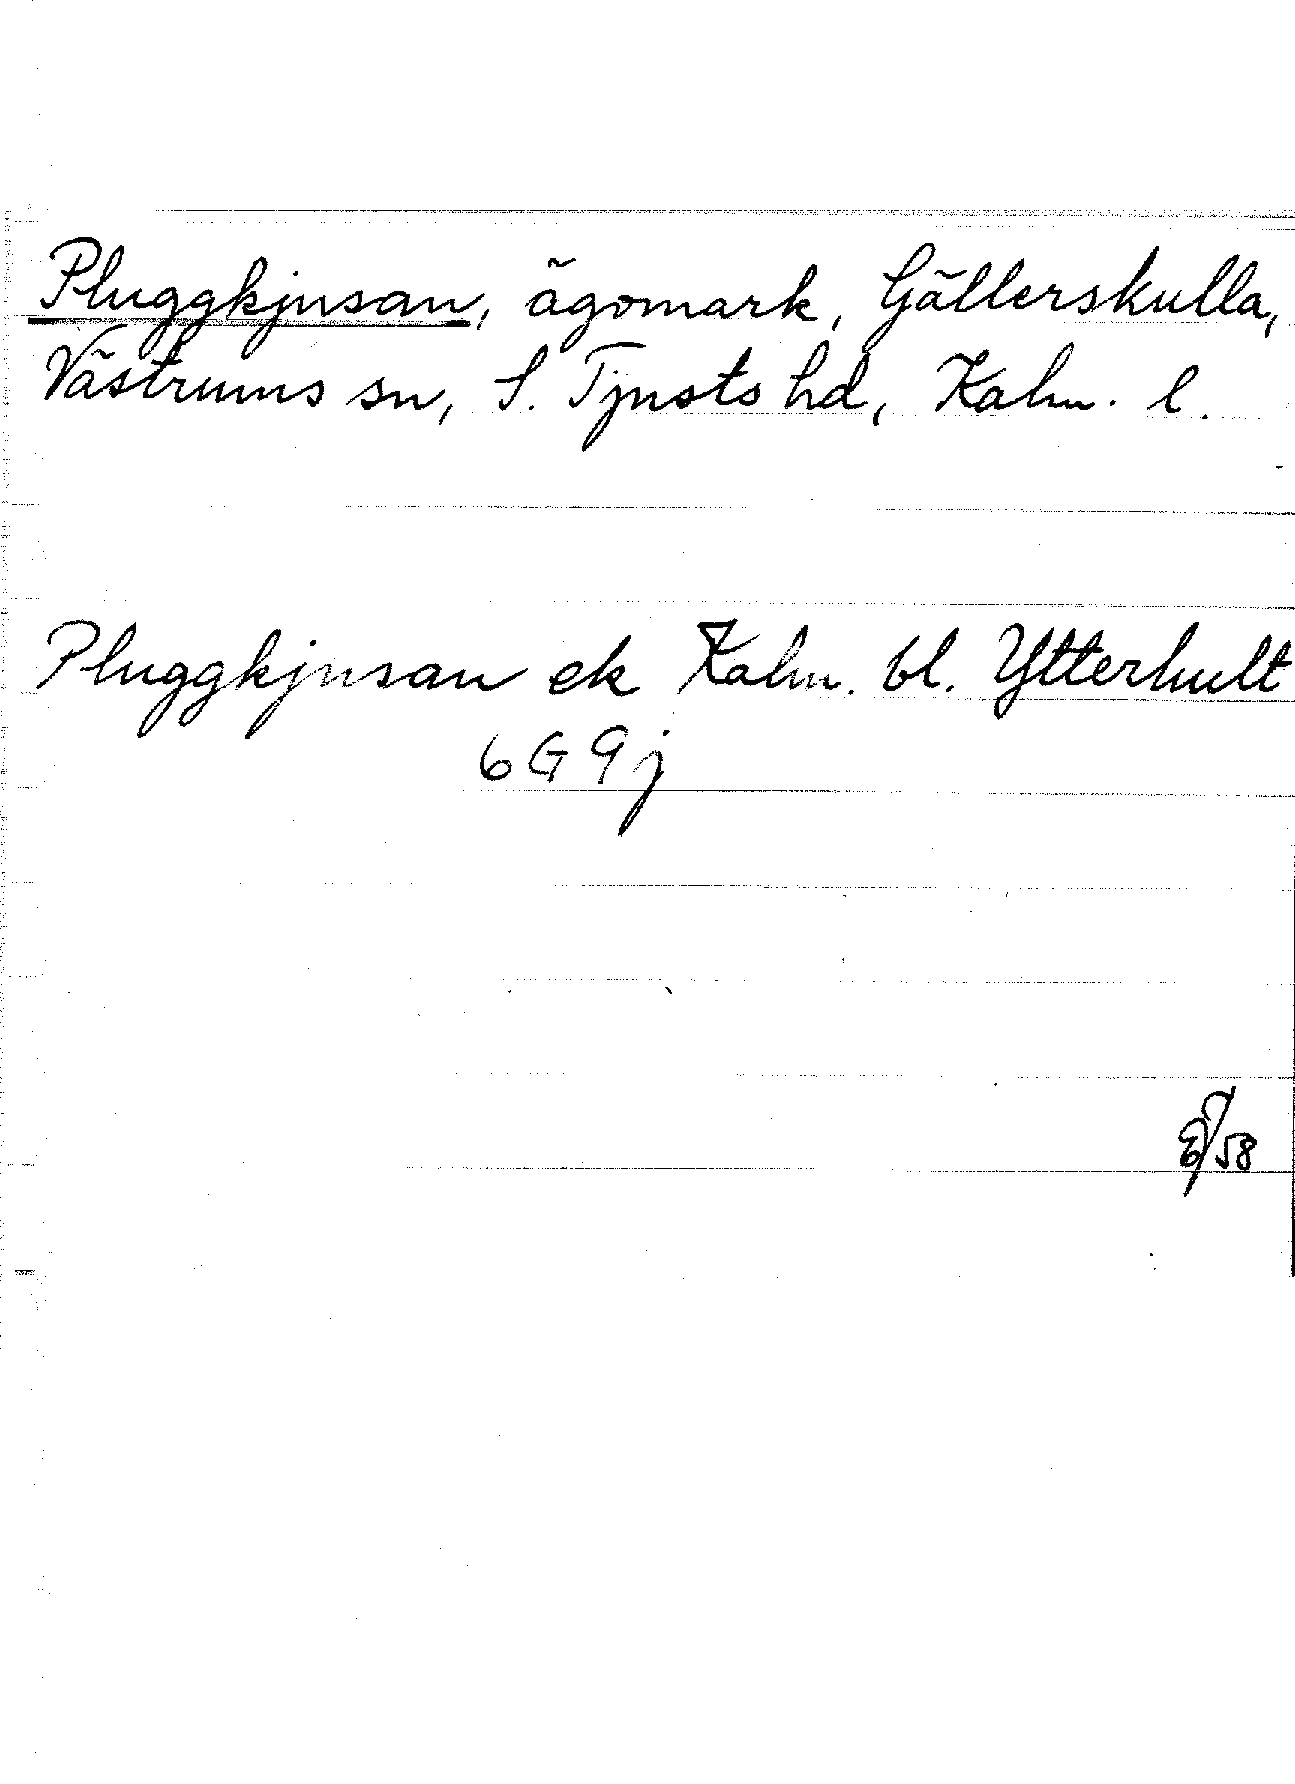 Pluggkjusan, ägomark, Gällerskulla,
Västrums sn, S. Tjusts hd, Kalm. l.
Pluggkjusan ek Kalm. bl. Ytterhult
6G 9j
/58